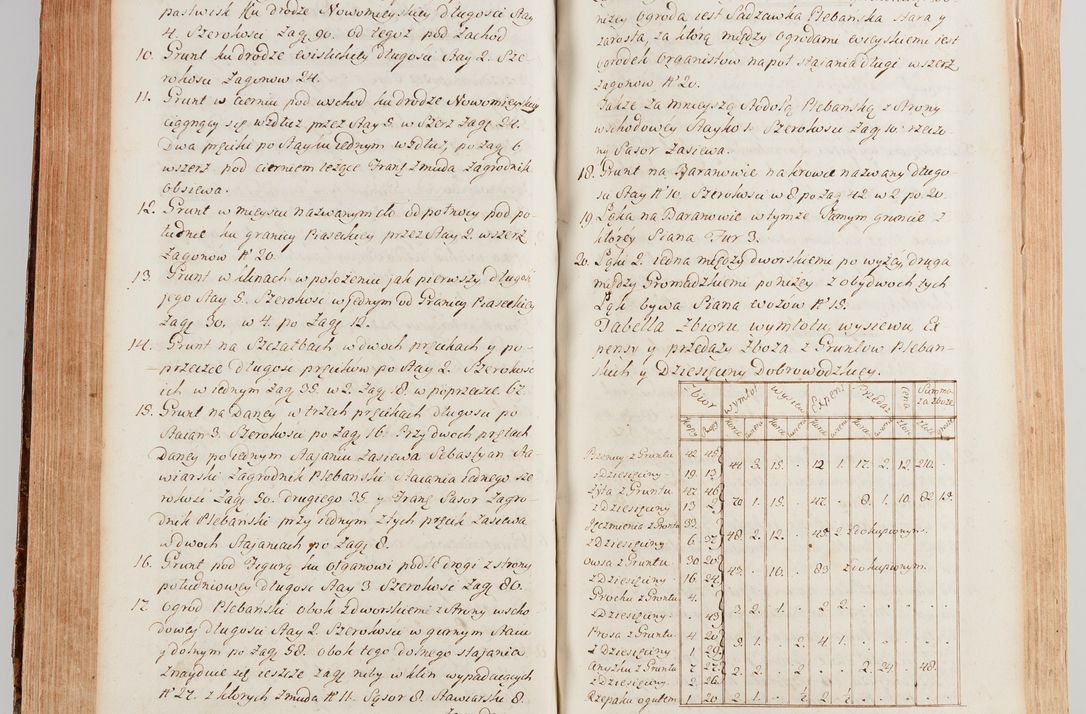 pastwisk Ku drodze Nowomieyskiey długości Stay
4. Szerokosci Zag: 90. od tegoż pod Zachod
10. Grunt ku drodze Wiskickiey długości Stay 2. Sze-
rokosci Zagonow 24.
11. Grunt w Cierniu pod wschod ku drodze Nowomieyskiey
ciągnący się wzdłuż przez Stay 5. w Szerz Zag: 24.
Dwa pręciki po Stayku iednym wzdłuż, po Zag: 6
wszerz pod cierniem leżące Frant Zmuda Zagrodnik
obsiewa.
12. Grunt w mieyscu nazwanym Ło od pułnocy pod po-
łudnie ku granicy Piaseckiey przez Stay 2. wszerz
Zagonow N° 20.
13. Grunt w klinach w położeniu jak pierwszy długość
jego Stay 5. Szerokosc w jednym od Granicy Piaseckiey
Zag: 30. w 4. po Zag: 12.
14. Grunt na Szczałbach w dwoch pręcikach y po-
przeczce długosc pręcikow po Stay 2. Szerokość
ich w iednym Zag 35. w 2. Zag: 18. w poprzeczce 62.
15. Grunt na Dancy w trzech pręcikach długości po
Staian 3. Szerokosci po Zag: 16. Przy dwoch prętach
Dancy po iednym Staianiu Zasiewa Sebastyan Sta-
wiarski Zagrodnik Plebański Staiania iednego sze-
rokosci Zag: 50. drugiego 35. y Franc Sasor Zagro-
dnik Plebański przy iednym z tych pręcik Zasiewa
w dwoch Staianiach po Zag: 8.
16. Grunt pod Figurą ku Organowi podle drogi z strony
południowey długosc Stay 3. Szerokosc Zag: 86.
17. Ogród Plebański obok z dworskiemi z Strony wscho-
dowey długości Stay 2. Szerokosci w gornym Staiu
y dolnym po Zag: 58. obok tego dolnego stajania
Znayduie się ieszcze zag: niby w klin wypadaiących
N° 27. z ktorych Zmuda N° 11. Sasor 8. Stawiarski 8.
niżey ogroda iest Sadzawka Plebańska stara y
zarosła, za ktorą między ogrodami wieyskiemi iest
ogrodek Organistow na puł stajania długi w szerz
zagonow N° 20.
Także Za mnieyszą Stodołą Plebańską z Strony
wschodowéy Stayko 1. Szerokosci Zag: 10. rzeczo-
ny Sasor Zasiewa.
18. Grunt na Baranowie na krowie nazwany długo-
sci Stay N° 10. Szerokosci w 8 po zag. 42. w 2 po 20.
19. Łąka na Baranowie w tymże Samym gruncie z
ktorey Siana Fur 3.
20. Łąki 2. iedna między dworskiemi po wyżey, druga
między Gromadzkiemi poniżey z obydwoch tych
Łąk bywa Siana wozow N° 15.
Tabella Zbioru, wymłotu, wysiewu, Ex
pensy y przedaży Zboża z Gruntow Pleban-
skich y Dziesięciny Dobrowodzkiey.
Zbior wymłot wysiew Expens Przedaż Cena Summa za zboże
Pszenicy z Gruntu 42 45
z Dziesięciny 19 13 44 3. 15. . 12 1. 17. 2. 12. 210. .
Żyta z Gruntu 47 46
z Dziesięciny 13 2 70 1. 15. . 47. . 8. 1. 10. 82 13.
Jęczmienia z Gruntu 33.
z Dziesięciny 6 37 48 2. 12. . 49 2 z dokupionym.
Owsa z Gruntu 30 20
z Dziesięciny 16 24 43. . 16. . 83 z dokupionym.
Grochu z Gruntu 4.
z Dziesięciny . 43 3. 2. 1. . 2 2. . . . . .
Prosa z Gruntu 4 20
z Dziesięciny 1 29 9. 1. . 2 4 1. . . . . .
Anyżku z Gruntu 7 27
z Dziesięciny 2. 26 2. 2. . 2 . . 2. 24. . 48. .
Rzepaku ogułem 1 20 2 1. . ½ 2 ½ . . . . .